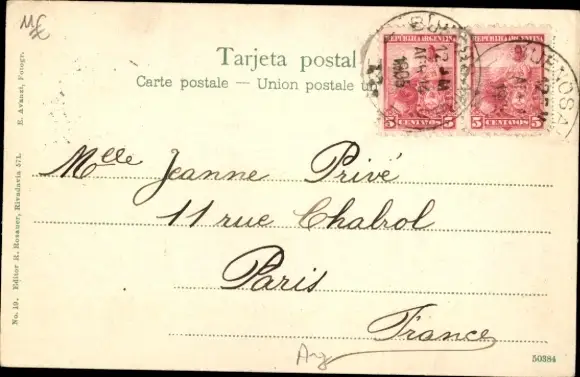 Tarjeta postal
Carte postale — Union postale
REPUBLICA ARGENTINA
5 CENTAVOS 5
REPUBLICA ARGENTINA
5 CENTAVOS 5
BUENOS A
12 M
1905
Mlle Jeanne Privé
11 rue Chabrol
Paris
France
Arg
E. Avanzi, Fotogr.
No. 19. Editor R. Rosauer, Rivadavia 571.
50384